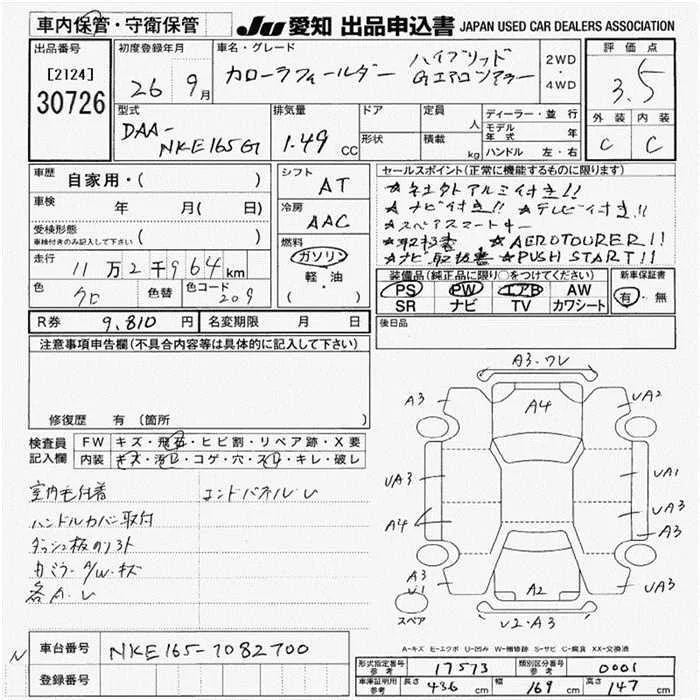 車内保管・守衛保管 JU 愛知 出品申込書 JAPAN USED CAR DEALERS ASSOCIATION
出品番号 初度登録年月 車名・グレード 評価点
[2124] 26年 9月 カローラフィールダー ハイブリッド 2WD・4WD 3.5
30726 Gエアロツアラー
型式 排気量 ドア 定員 人 ディーラー・並行 外装 内装
DAA- 1.49 CC 形状 積載 kg モデル年式 年 C C
NKE165G ハンドル 左・右
車歴 自家用・( ) シフト AT セールスポイント(正常に機能するものに限ります)
車検 年 月( 日) 冷房 AAC ★ナビ付き!! ★テレビ付き!!
受検形態 ( )
車検付きのみ記入して下さい
★取扱書 ★AEROTOURER!!
走行 11万2千964km 燃料 ガソリン ★ナビ取扱書 ★PUSH START!!
色 クロ 色替 色コード 209 軽・油 ( )
装備品(純正品に限り○をつけてください) 新車保証書
PS PW エアB AW 有・無
SR ナビ TV カワシート
R券 9,810円 名変期限 月 日 後日品
注意事項申告欄(不具合内容等は具体的に記入して下さい)
修復歴 有(箇所 )
検査員 FW キズ・飛石・ヒビ割・リペア跡・X要
記入欄 内装 キズ・汚レ・コゲ・穴・スレ・キレ・破レ
エンドパネルレ
ハンドルカバー取付
A3・ワレ
A3 A4 UA2
UA3 UA1
A4 UA3
A3
A3 U1 A2 UA3
スペア U2・A3
A-キズ E-エクボ U-凹み W-補修跡 S-サビ C-腐食 XX-交換済
車台番号 NKE165-7082700
登録番号
形式指定番号 参考 17573 類別区分番号 参考 0001
車庫証明用 参考 長さ 436cm 幅 169cm 高さ 147cm